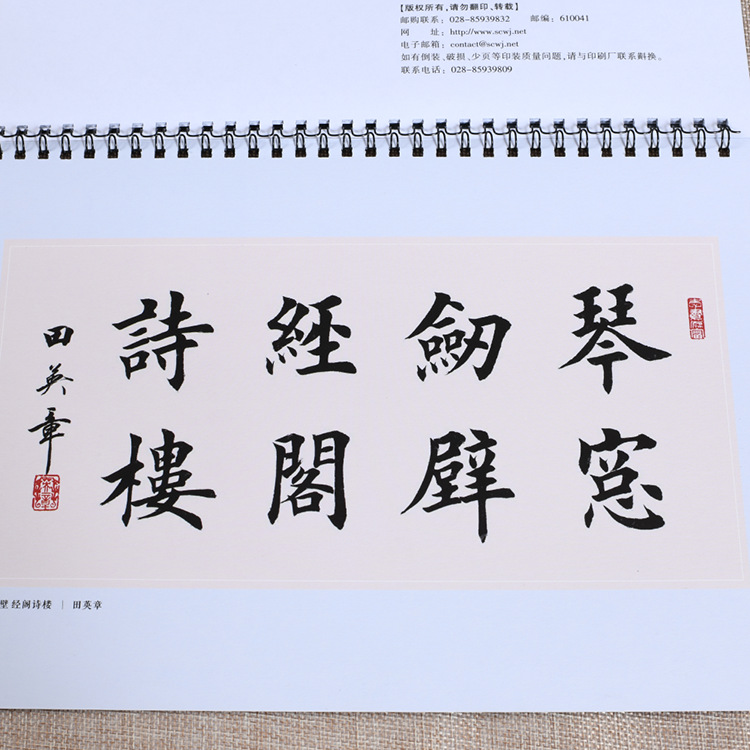 【版权所有,请勿翻印、转载】
邮购联系：028-85939832 邮编：610041
网 址：http://www.scwj.net
电子邮箱：contact@scwj.net
如有倒装、破损、少页等印装质量问题,请与印刷厂联系斟换。
联系电话：028-85939809
琴窓
劒壁
經閣
詩樓
田英章
壁 经阁诗楼 | 田英章